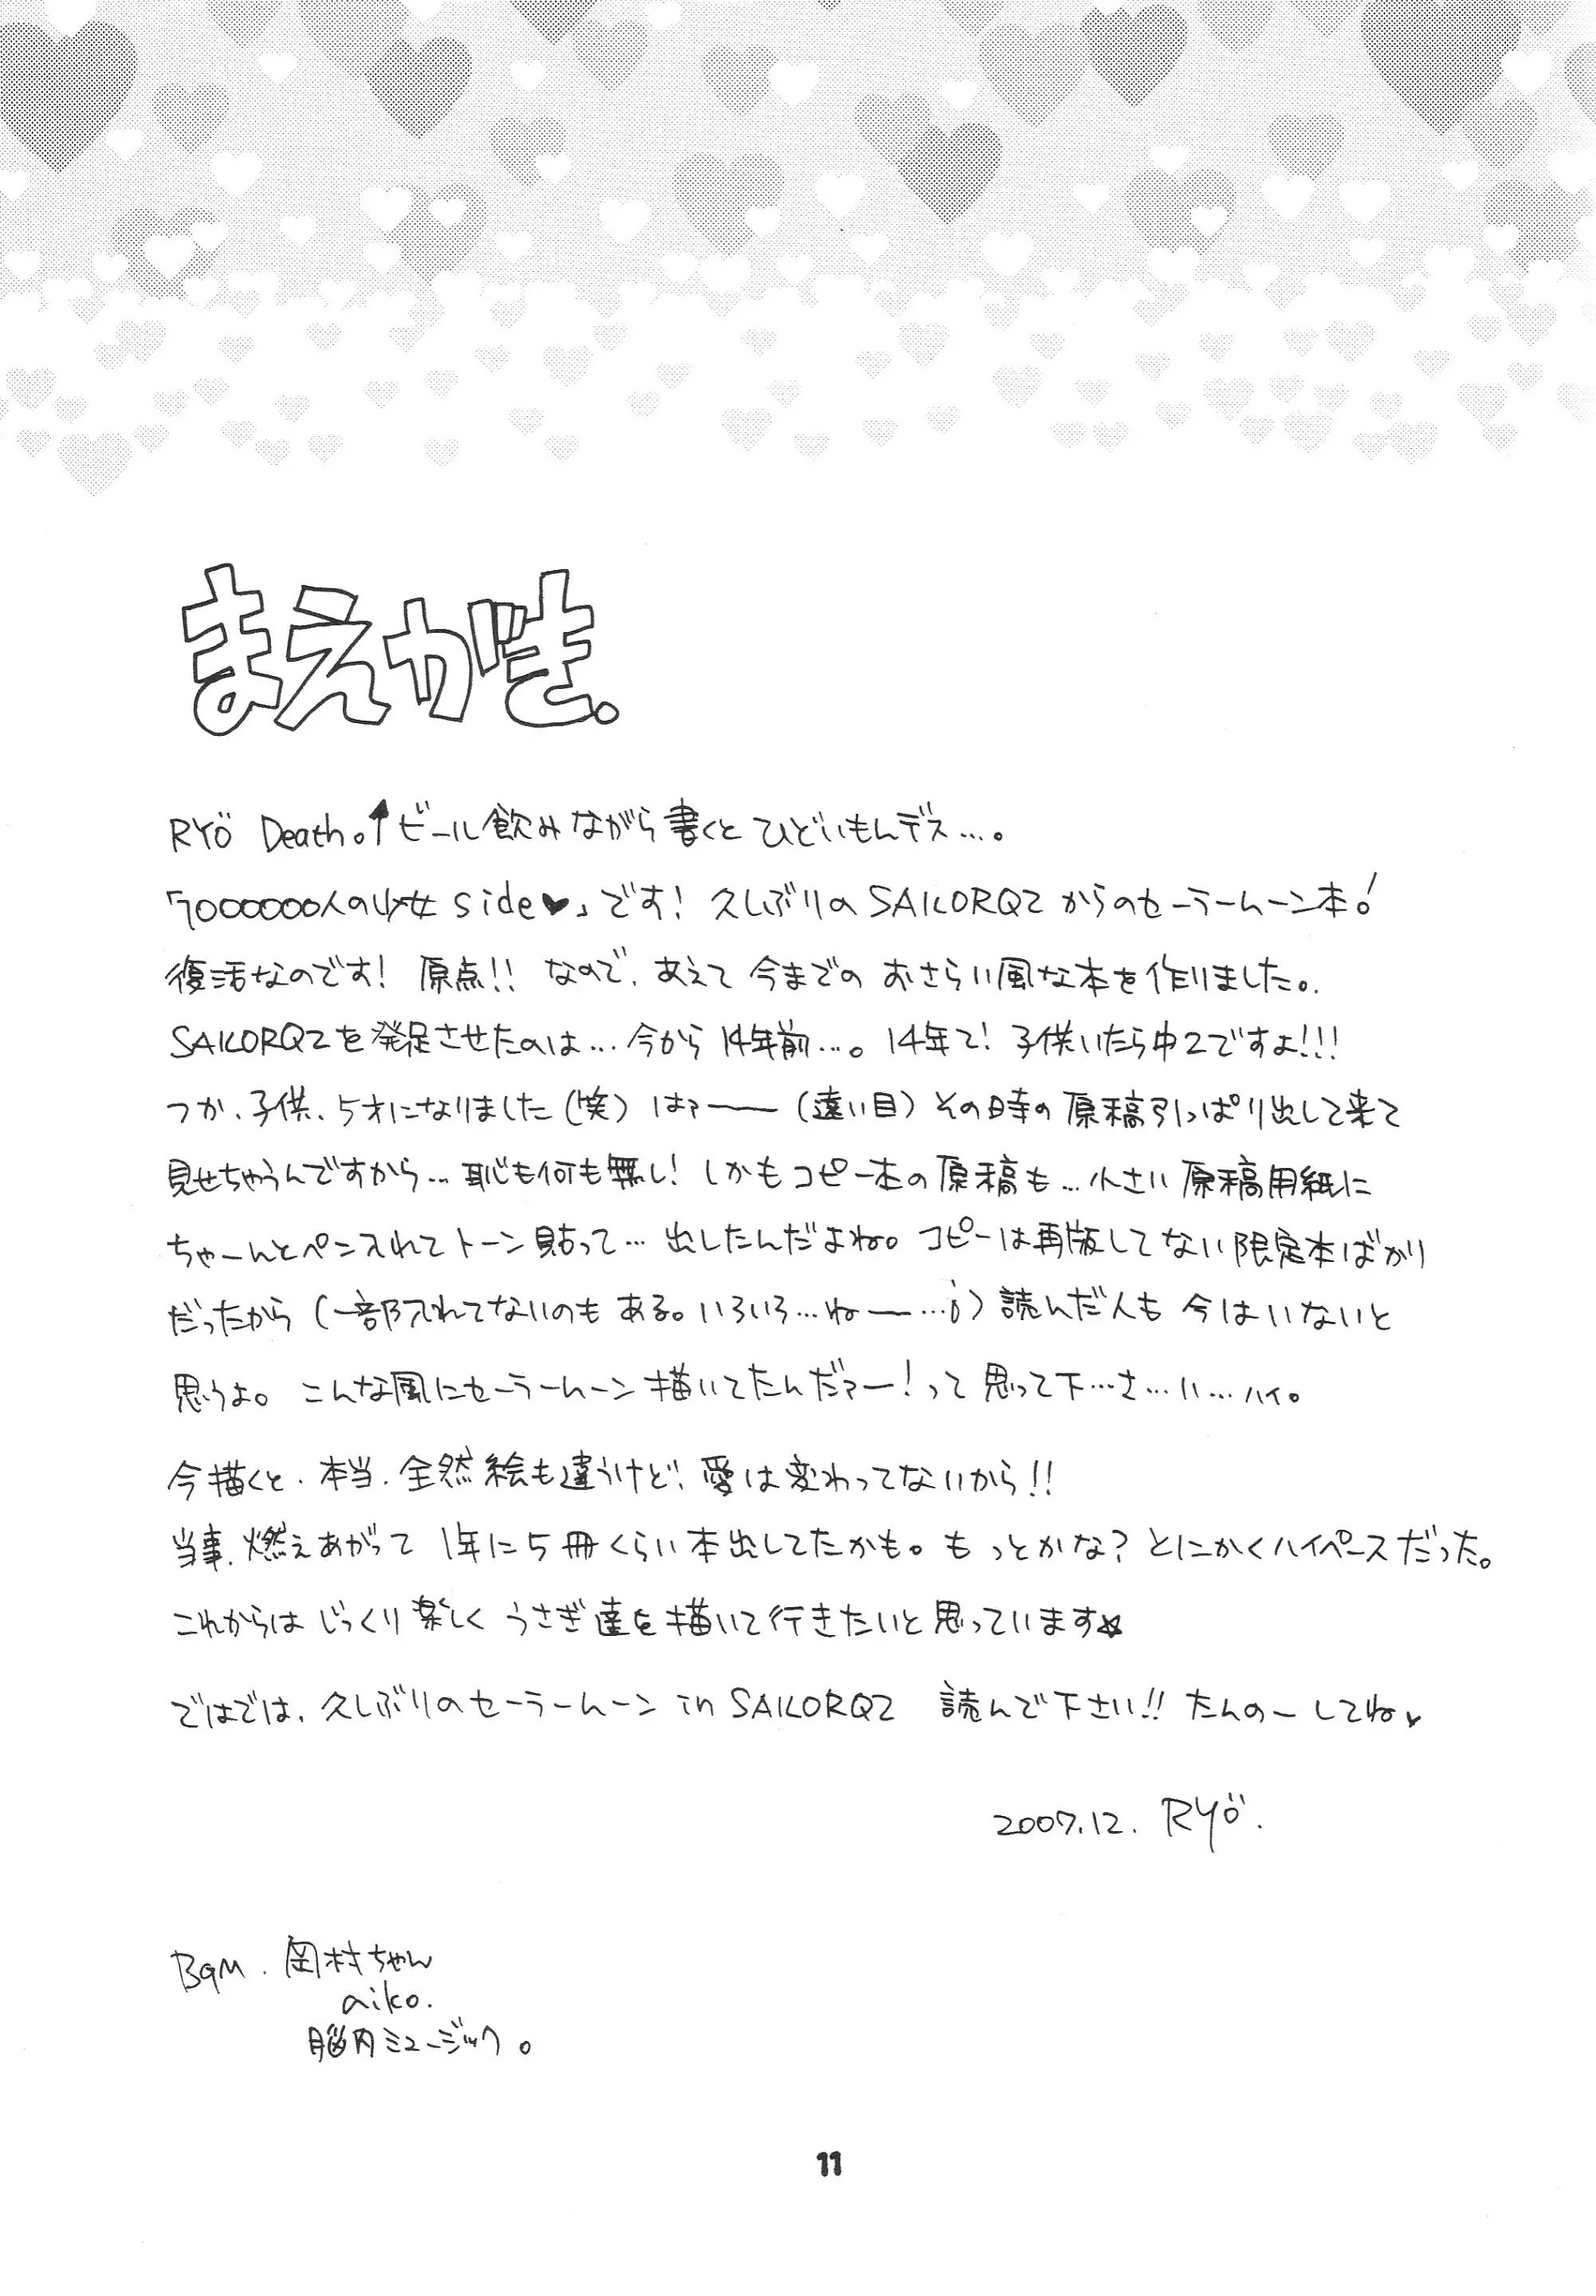 まえがき。
RYÖ Death。↑ビール飲みながら書くとひどいもんデス…。
「7000000人の少女side♥」です! 久しぶりのSAILORQ2からのセーラームーン本!
復活なのです! 原点!! なので、あえて今までのおさらい風な本を作りました。
SAILORQ2を発足させたのは…今から14年前…。14年て! 子供いたら中2ですよ!!!
つか、子供、5才になりました(笑) はァ――(遠い目)その時の原稿引っぱり出して来て
見せちゃうんですから…恥も何も無し! しかもコピー本の原稿も…小さい原稿用紙に
ちゃーんとペン入れてトーン貼って…出したんだよね。コピーは再版してない限定本ばかり
だったから(一部入れてないのもある。いろいろ…ねー…)読んだ人も今はいないと
思うよ。こんな風にセーラームーン描いてたんだァー!って思って下…さ…い…ハイ。
今描くと、本当、全然絵も違うけど、愛は変わってないから!!
当事、燃えあがって1年に5冊くらい本出してたかも。もっとかな?とにかくハイペースだった。
これからはじっくり楽しくうさぎ達を描いて行きたいと思っています☆
ではでは、久しぶりのセーラームーン in SAILORQ2 読んで下さい!! たんのーしてね♥
2007.12. RYÖ.
BGM. 岡村ちゃん
aiko.
脳内ミュージック。
11